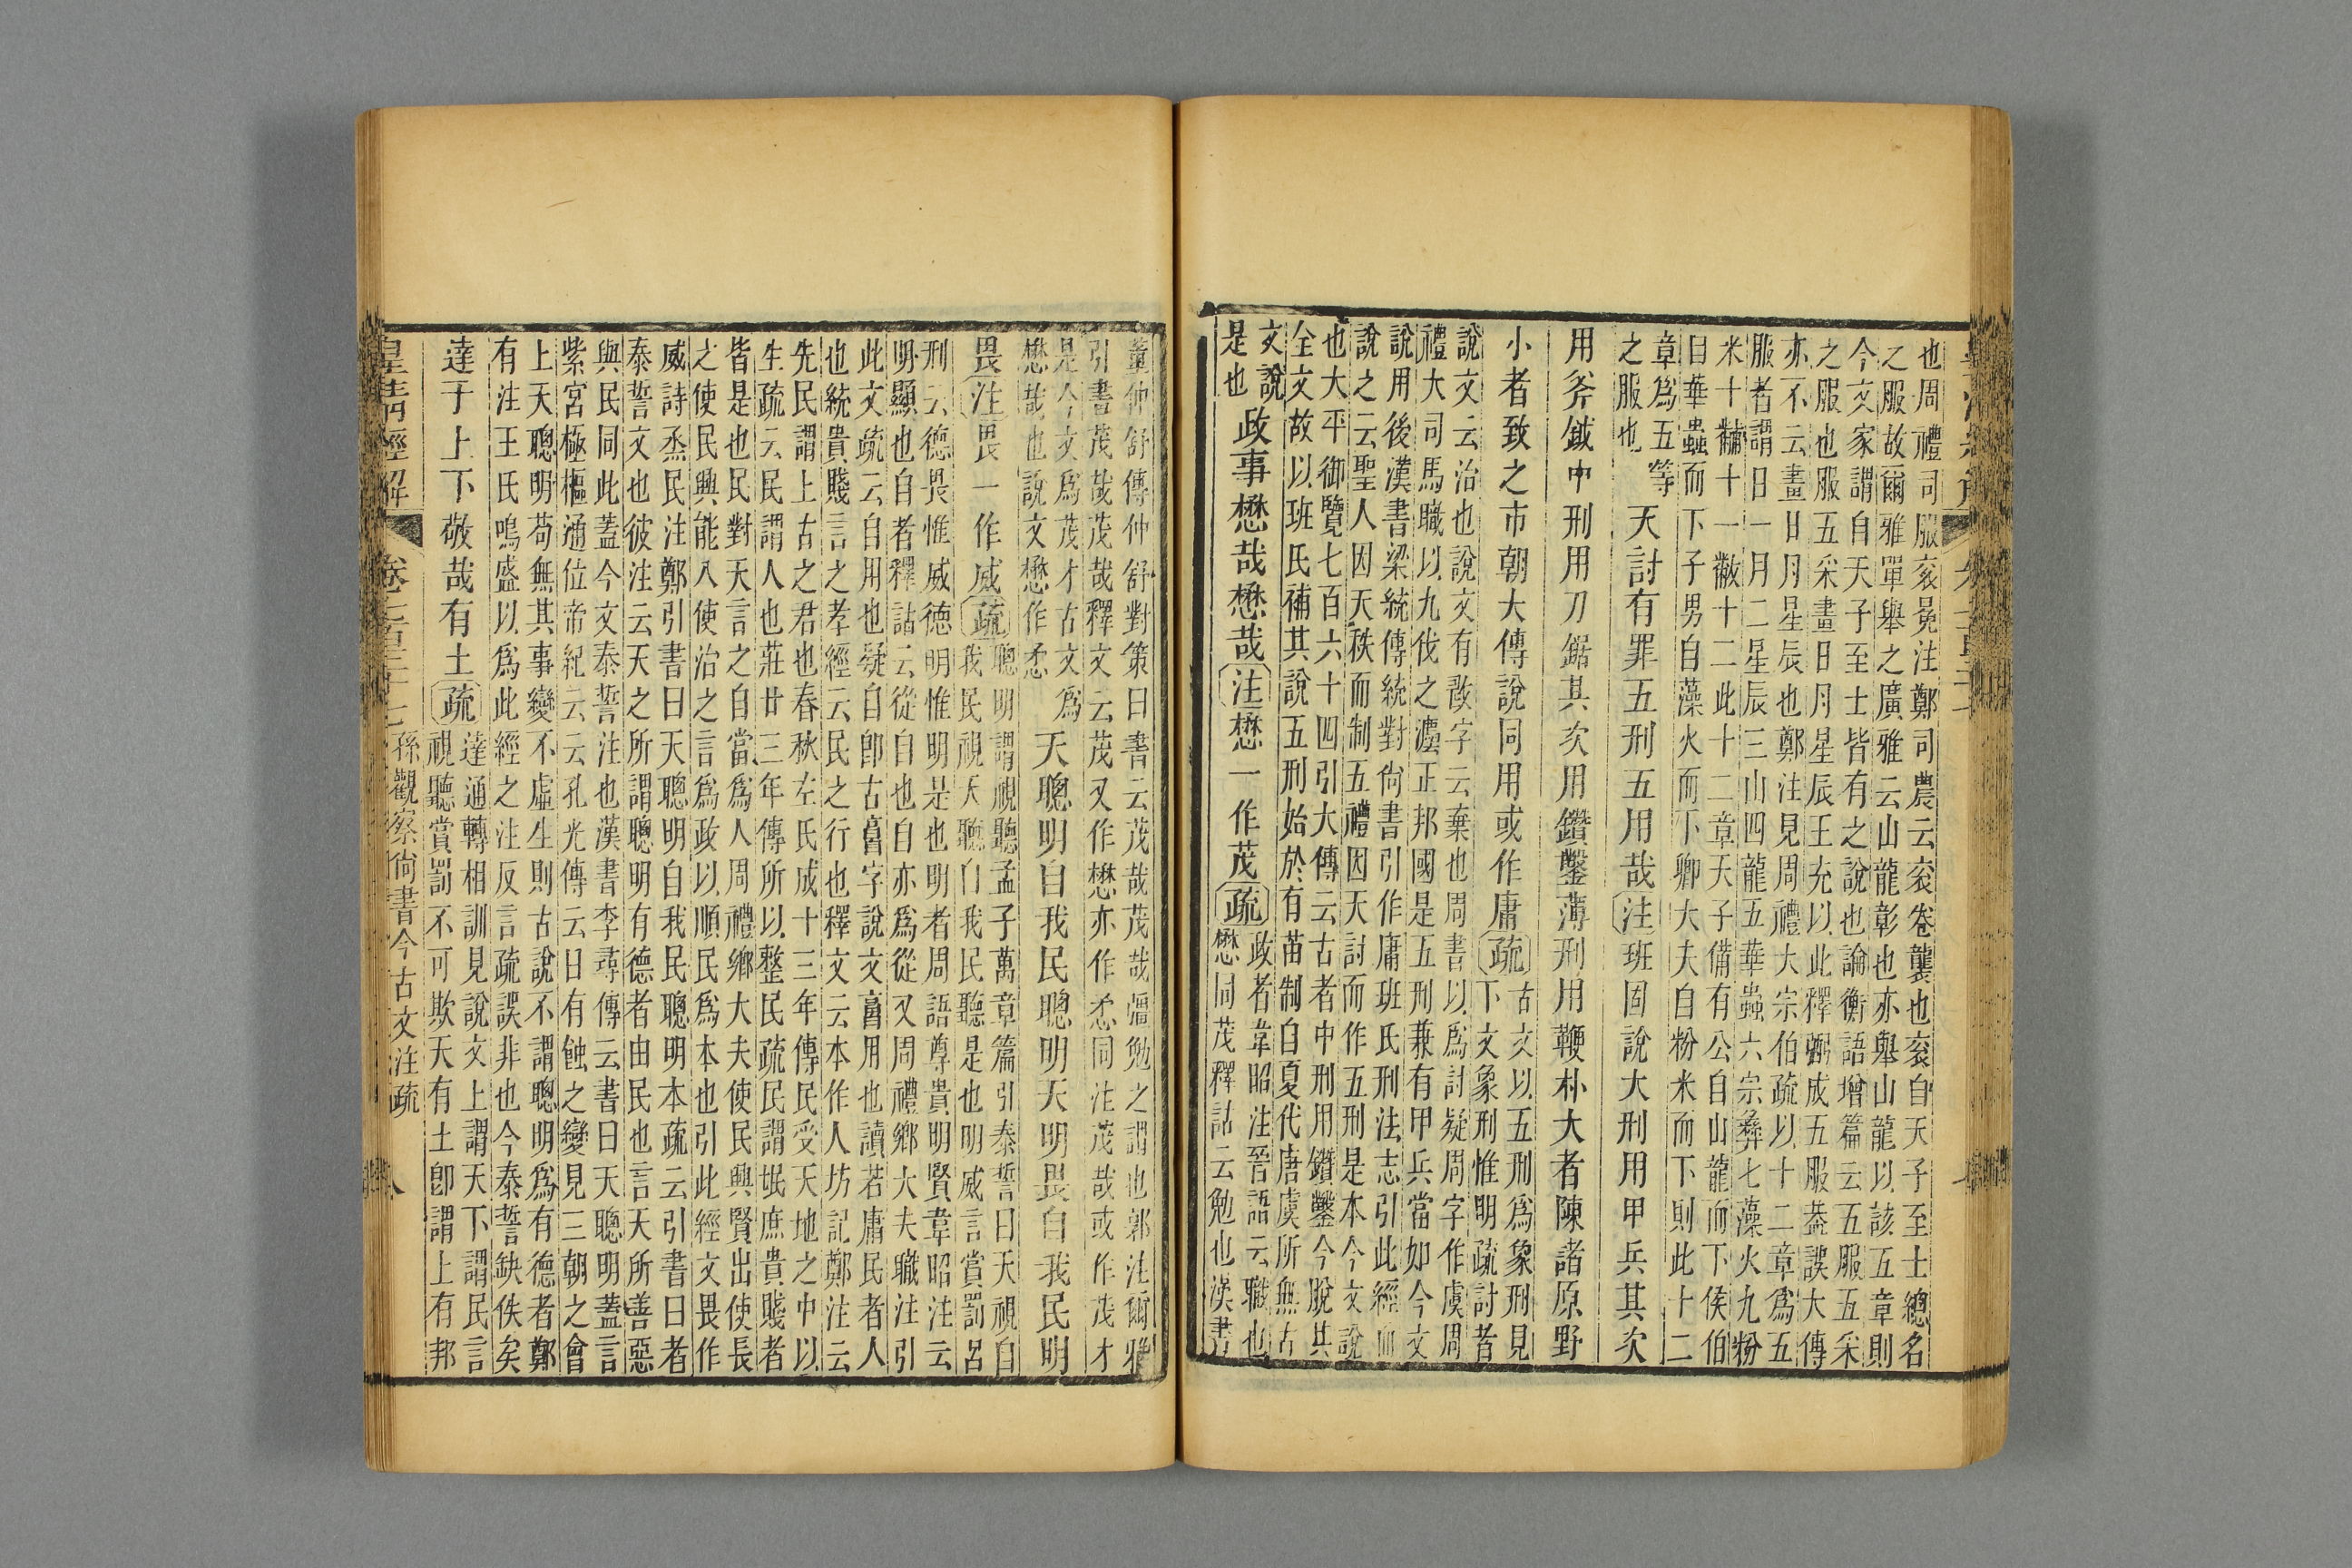 也周禮司服衮冕注鄭司農云衮卷龔也衮自天子至士總名
之服故爾雅單舉之廣雅云山龍彰也亦舉山龍以該五章則
今文家謂自天子至士皆有之說也論衡語增篇云五服五采
之服也服五采畫日月星辰王充以此釋弼成五服葢誤大傳
亦不云畫日月星辰也鄭注見周禮大宗伯疏以十二章爲五
服者謂日一月二星辰三山四龍五華蟲六宗彝七藻火九粉
米十黼十一黻十二此十二章天子備有公自山龍而下侯伯
自華蟲而下子男自藻火而下卿大夫自粉米而下則此十二
章爲五等
之服也
天討有罪五刑五用哉注班固說大刑用甲兵其次
用斧鉞中刑用刀鋸其次用鑽鑿薄刑用鞭朴大者陳諸原野
小者致之市朝大傳說同用或作庸疏
古文以五刑爲象刑見
下文象刑惟明疏討者
說文云治也說文有敱字云棄也周書以爲討疑周字作虞周
禮大司馬職以九伐之灋正邦國是五刑兼有甲兵當如今文
說用後漢書梁統傳統對尙書引作庸班氏刑法志引此經而
說之云聖人因天秩而制五禮因天討而作五刑是本今文說
也大平御覽七百六十四引大傳云古者中刑用鑽鑿今脫其
全文故以班氏補其說五刑始於有苗制自夏代唐虞所無古
文說
是也
政事懋哉懋哉注懋一作茂疏
政者韋昭注晉語云職也
懋同茂釋詁云勉也漢書
董仲舒傳仲舒對策曰書云茂哉茂哉彊勉之謂也郭注爾雅
引書茂哉茂哉釋文云茂又作懋亦作忞同注茂哉或作茂才
是今文爲茂才古文爲
懋哉也說文懋作忞
天聰明自我民聰明天明畏自我民明
畏注畏一作威疏
聰明謂視聽孟子萬章篇引泰誓曰天視自
我民視天聽自我民聽是也明威言賞罰呂
刑云德畏惟威德明惟明是也明者周語尊貴明賢韋昭注云
明顯也自者釋詁云從自也自亦爲從又周禮鄉大夫職注引
此文疏云自用也疑自卽古𦤎字說文𦤎用也讀若庸民者人
也統貴賤言之孝經云民之行也釋文云本作人坊記鄭注云
先民謂上古之君也春秋左氏成十三年傳民受天地之中以
生疏云民謂人也莊廿三年傳所以整民疏民謂氓庶貴賤者
皆是也民對天言之自當爲人周禮鄉大夫使民興賢出使長
之使民興能入使治之言爲政以順民爲本也引此經文畏作
威詩烝民注鄭引書曰天聰明自我民聰明本疏云引書曰者
泰誓文也彼注云天之所謂聰明有德者由民也言天所善惡
與民同此葢今文泰誓注也漢書李尋傳云書曰天聰明葢言
紫宮極樞通位帝紀云云孔光傳云日有蝕之變見三朝之會
上天聰明苟無其事變不虛生則古說不謂聰明爲有德者鄭
有注王氏鳴盛以爲此經之注反言疏誤非也今泰誓缺佚矣
達于上下敬哉有土疏
達通轉相訓見說文上謂天下謂民言
視聽賞罰不可欺天有土卽謂上有邦
皇淸經解 卷七百三十七 孫觀察尙書今古文注疏 八